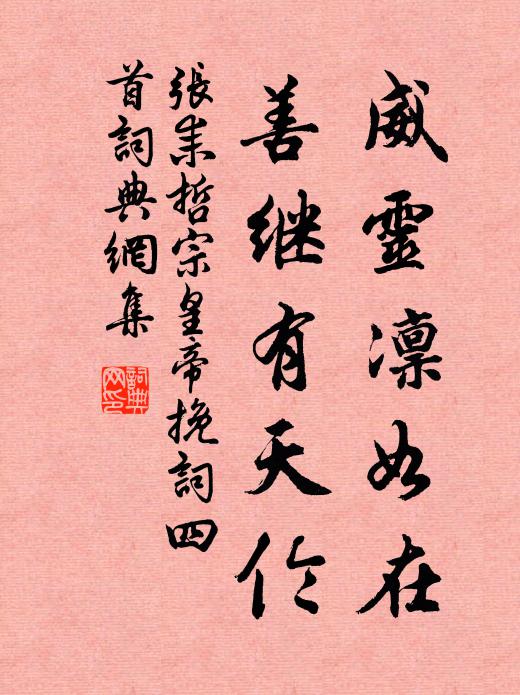 威靈凛如在
善继有天伦
張耒哲宗皇帝挽詞四
首詞典網集
詞典網印